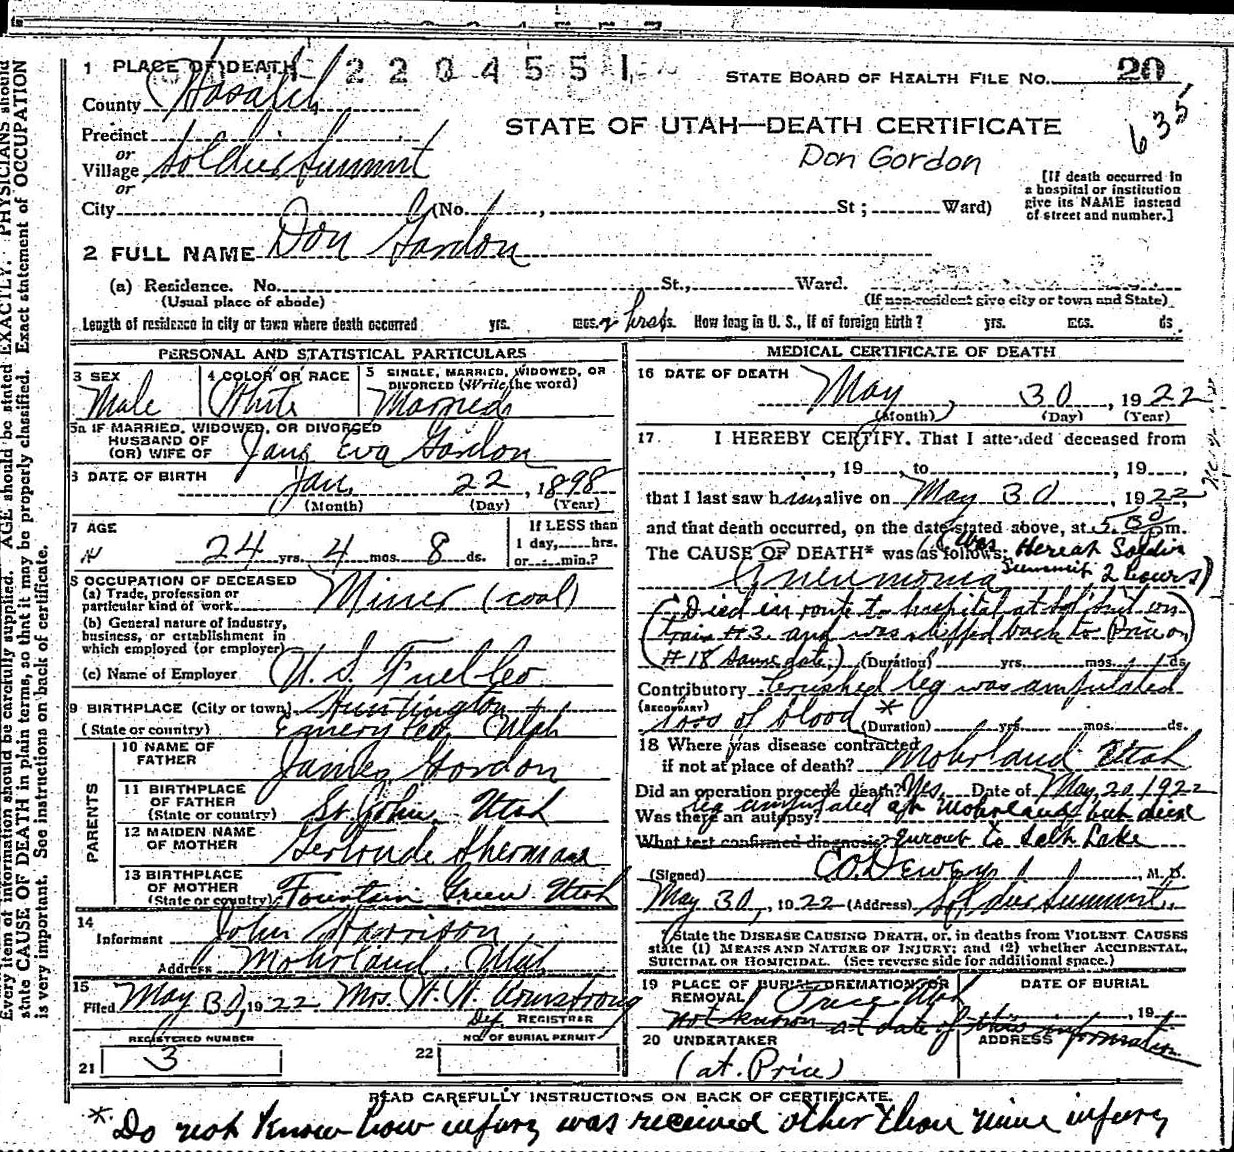 1 PLACE OF DEATH 2 2 0 4 5 5 1
STATE BOARD OF HEALTH FILE No. 20
635
County Wasatch
STATE OF UTAH—DEATH CERTIFICATE
Don Gordon
Precinct
or
Village Soldier Summit
or
City (No. , St ; Ward)
[If death occurred in
a hospital or institution
give its NAME instead
of street and number.]
2 FULL NAME Don Gordon
(a) Residence. No. St., Ward.
(Usual place of abode) (If non-resident give city or town and State)
Length of residence in city or town where death occurred yrs. mos. 2 hrs ds. How long in U. S., if of foreign birth? yrs. mos. ds
PERSONAL AND STATISTICAL PARTICULARS
3 SEX Male
4 COLOR OR RACE White
5 SINGLE, MARRIED, WIDOWED, OR
DIVORCED (Write the word)
Married
5a IF MARRIED, WIDOWED, OR DIVORCED
HUSBAND OF
(OR) WIFE OF Jane Eva Gordon
6 DATE OF BIRTH Jan 22, 1898
(Month) (Day) (Year)
7 AGE 24 yrs. 4 mos. 8 ds.
If LESS than
1 day, hrs.
or min.?
8 OCCUPATION OF DECEASED
(a) Trade, profession or
particular kind of work Miner (coal)
(b) General nature of industry,
business, or establishment in
which employed (or employer)
(c) Name of Employer U. S. Fuel Co
9 BIRTHPLACE (City or town) Huntington
(State or country) Emery Co. Utah
PARENTS
10 NAME OF
FATHER James Gordon
11 BIRTHPLACE
OF FATHER
(State or country) St. John, Utah
12 MAIDEN NAME
OF MOTHER Gertrude Sherman
13 BIRTHPLACE
OF MOTHER
(State or country) Fountain Green Utah
14
Informant John Harrison
Address Mohrland Utah
15
Filed May 30, 1922 Mrs. W. W. Armstrong
Dep REGISTRAR
REGISTERED NUMBER
21 3
NO. OF BURIAL PERMIT
22
MEDICAL CERTIFICATE OF DEATH
16 DATE OF DEATH
May 30, 1922
(Month) (Day) (Year)
17. I HEREBY CERTIFY, That I attended deceased from
, 19 , to , 19 ,
that I last saw him alive on May 30, 1922,
and that death occurred, on the date stated above, at 5:30 pm.
The CAUSE OF DEATH* was as follows: (Was Here at Soldier
Summit 2 hours)
Pneumonia
(Died in route to hospital at Sol. Smit on
train #3 and was shipped back to Price on
#18 same date.) (Duration) yrs. mos. ds
Contributory Crushed leg was amputated
(SECONDARY)
loss of blood * (Duration) yrs. mos. ds.
18 Where was disease contracted
if not at place of death? Mohrland Utah
Did an operation precede death? Yes. Date of May 20 1922
leg amputated at Mohrland but died
Was there an autopsy?
What test confirmed diagnosis? enrout to Salt Lake
(Signed) C. O. Dewey, M. D.
May 30, 1922 (Address) Soldier Summit.
*State the DISEASE CAUSING DEATH, or, in deaths from VIOLENT CAUSES
state (1) MEANS AND NATURE OF INJURY; and (2) whether ACCIDENTAL,
SUICIDAL OR HOMICIDAL. (See reverse side for additional space.)
19 PLACE OF BURIAL, CREMATION, OR
REMOVAL Price Utah
DATE OF BURIAL
, 19
not known at date of this information
20 UNDERTAKER
(at. Price)
ADDRESS
READ CAREFULLY INSTRUCTIONS ON BACK OF CERTIFICATE.
* Do not know how injury was received other than mine injury
Every item of information should be carefully supplied. AGE should be stated EXACTLY. PHYSICIANS should
state CAUSE OF DEATH in plain terms, so that it may be properly classified. Exact statement of OCCUPATION
is very important. See instructions on back of certificate.